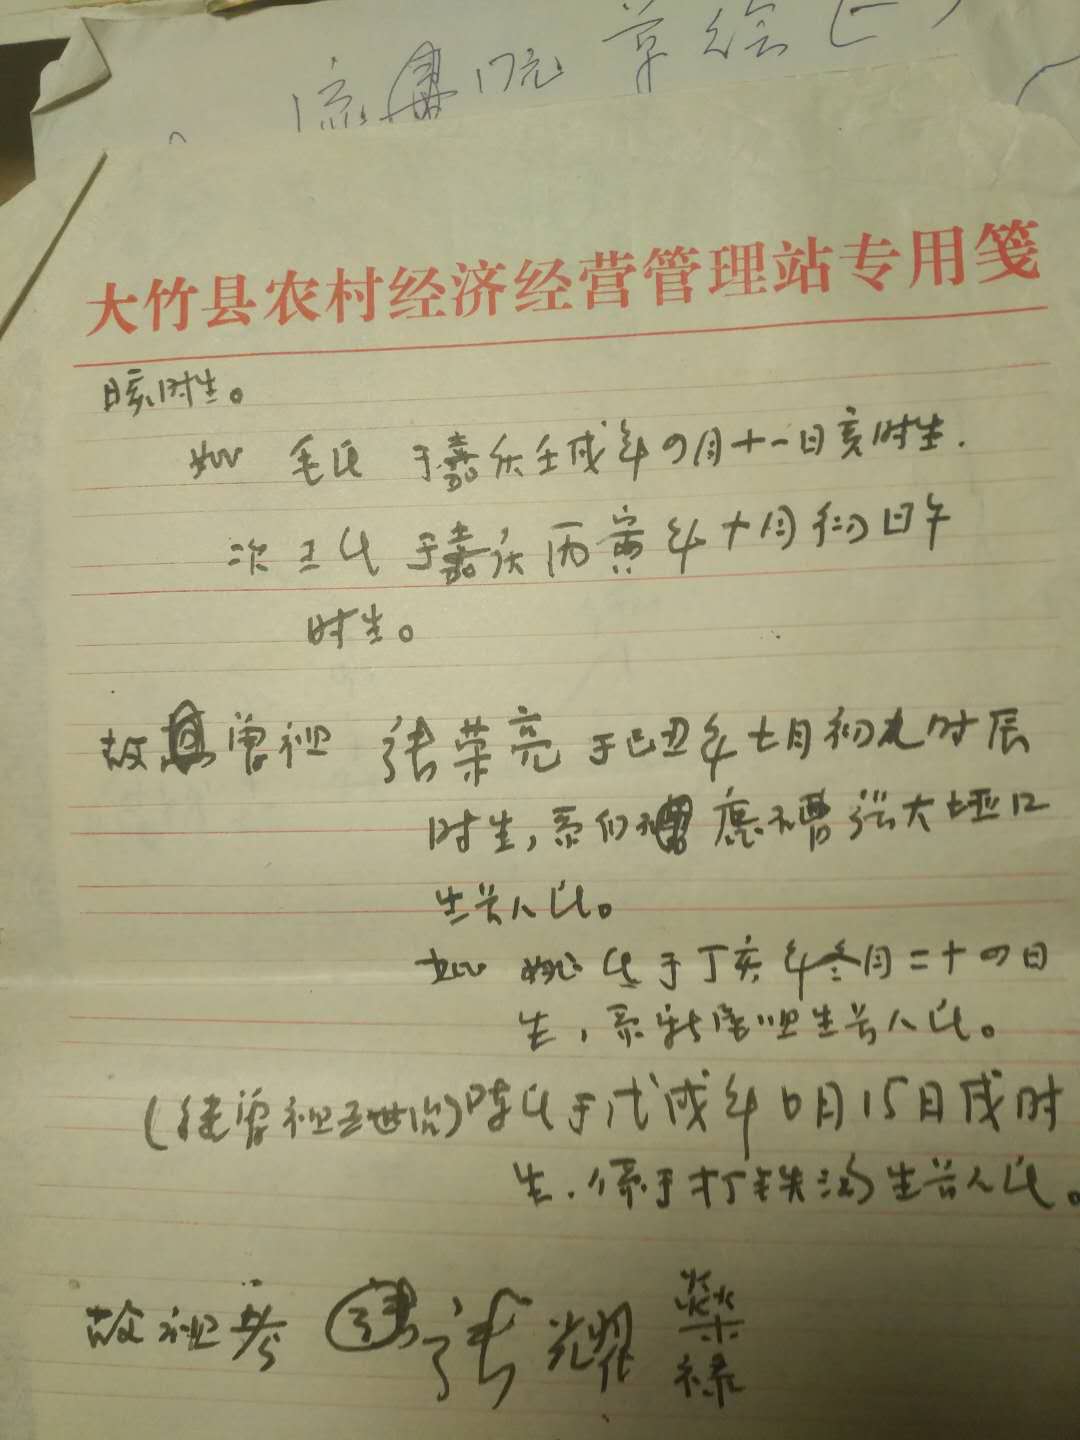 草绘
大竹县农村经济经营管理站专用笺
日亥时生。
毛氏 于嘉庆壬戌年四月十一日亥时生.
次 王氏 于嘉庆丙寅年十月初 日午
时生。
故 曾祖 张荣亮 于己丑年七月初九时辰
时生, 系 张大垭口
生长人氏。
姚氏于丁亥年冬月二十四日
生, 系 生长人氏。
曾祖 陈氏于戊戌年6月15日戌时
生. 系于打铁 生长人氏。
故祖考 张 耀 荣
禄